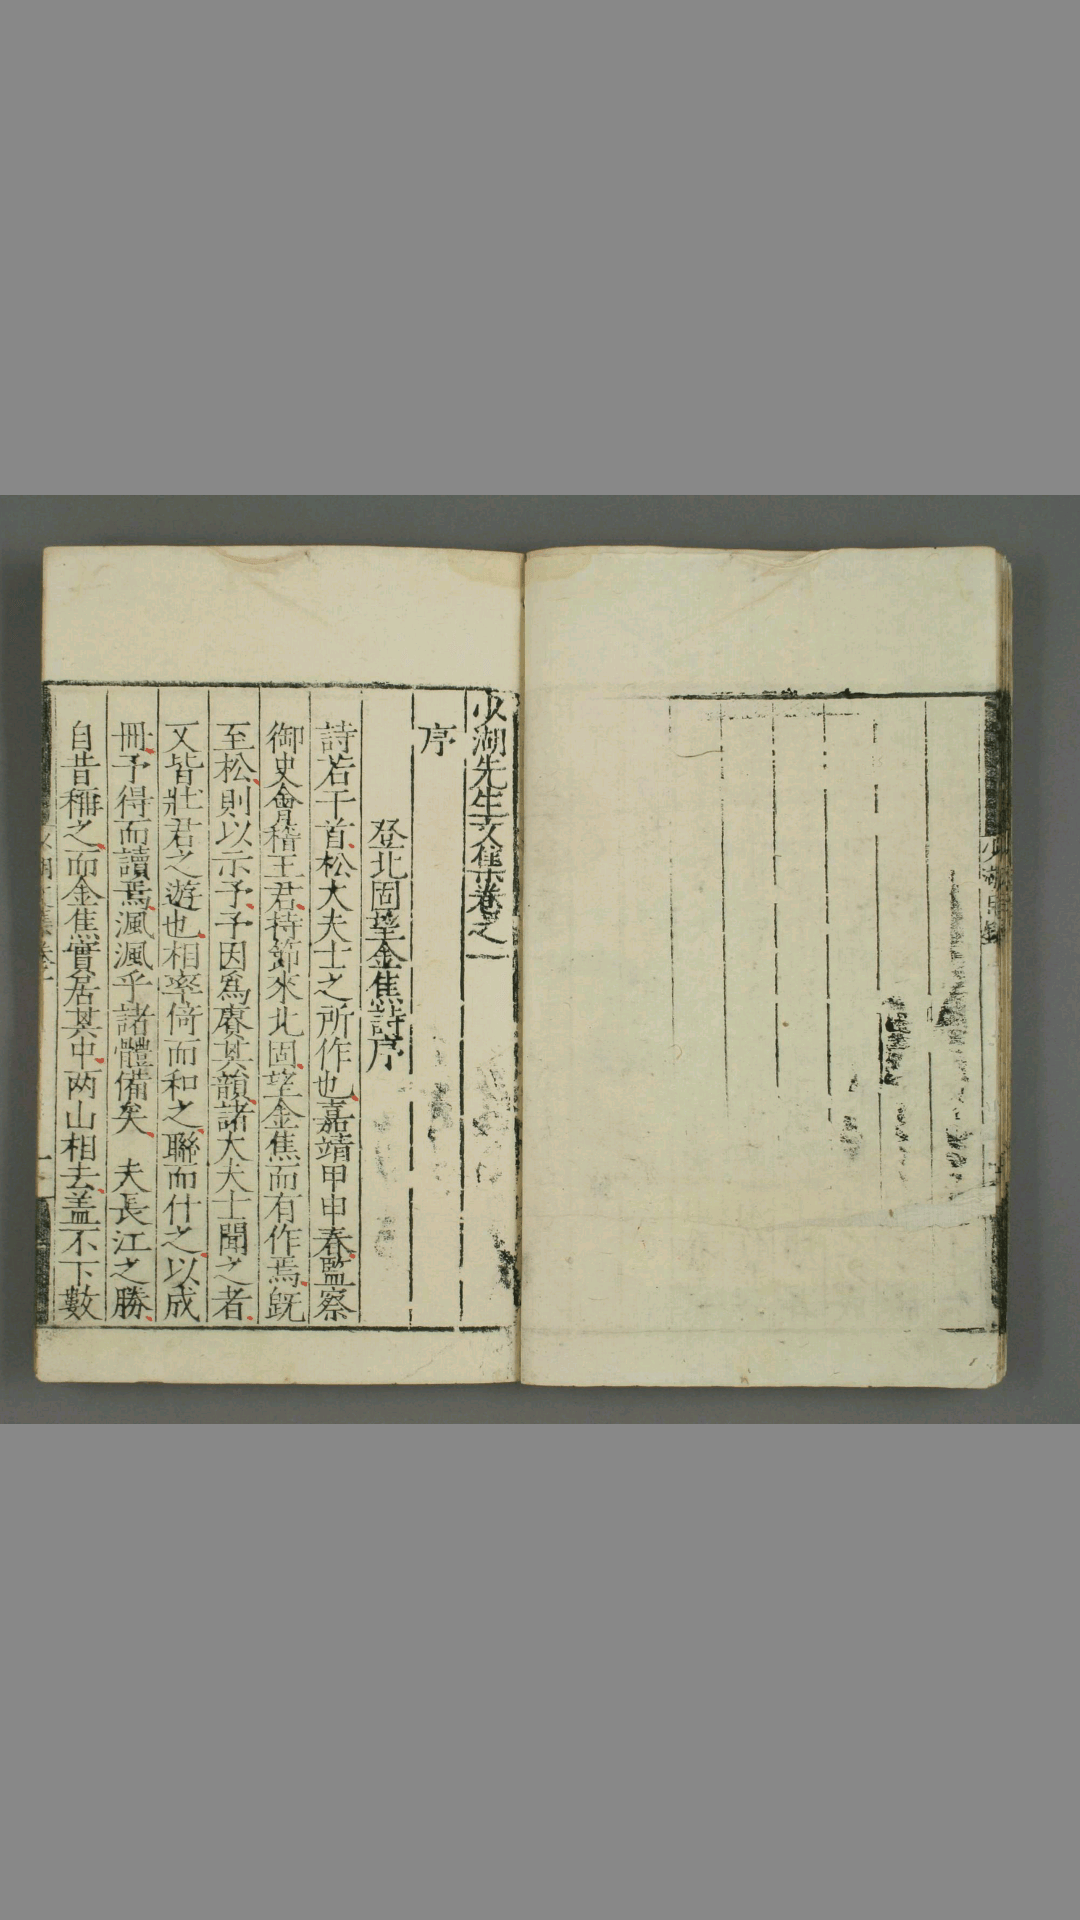 少湖先生文集卷之一
序
登北固望金焦詩序
詩若干首松大夫士之所作也嘉靖甲申春監察
御史會稽王君持節來北固望金焦而有作焉既
至松則以示予予因爲賡其韻諸大夫士聞之者
又皆壯君之遊也相率倚而和之聯而什之以成
冊予得而讀焉渢渢乎諸體備矣　夫長江之勝
自昔稱之而金焦實居其中两山相去盖不下數